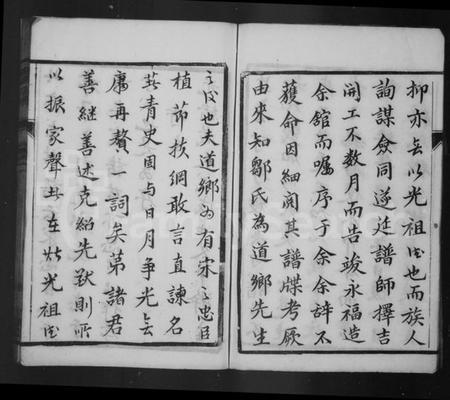 抑亦無以光祖德也而族人
詢謀僉同遂廷譜師擇吉
開工不数月而告竣永福造
余館而囑序于余余辞不
獲命因細閱其譜牒考厥
由來知鄒氏為道鄉先生
之後也夫道鄉為有宋之忠臣
植節扶綱敢言直諫名
垂青史固与日月争光無
庸再贅一詞矣第諸君
善継善述克紹先猷則所
以振家聲者在此光祖德